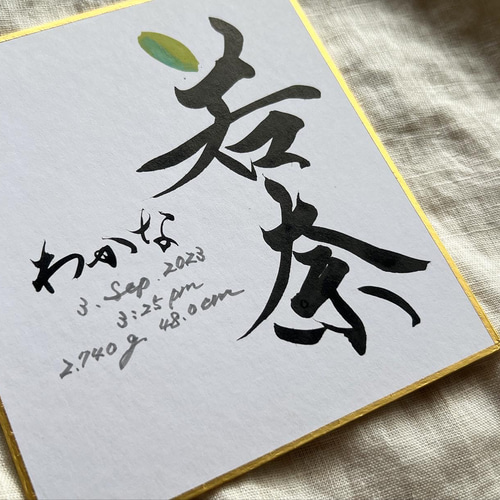 若奈
わかな
3. Sep. 2023
3:25 pm
2.740g 48.0cm